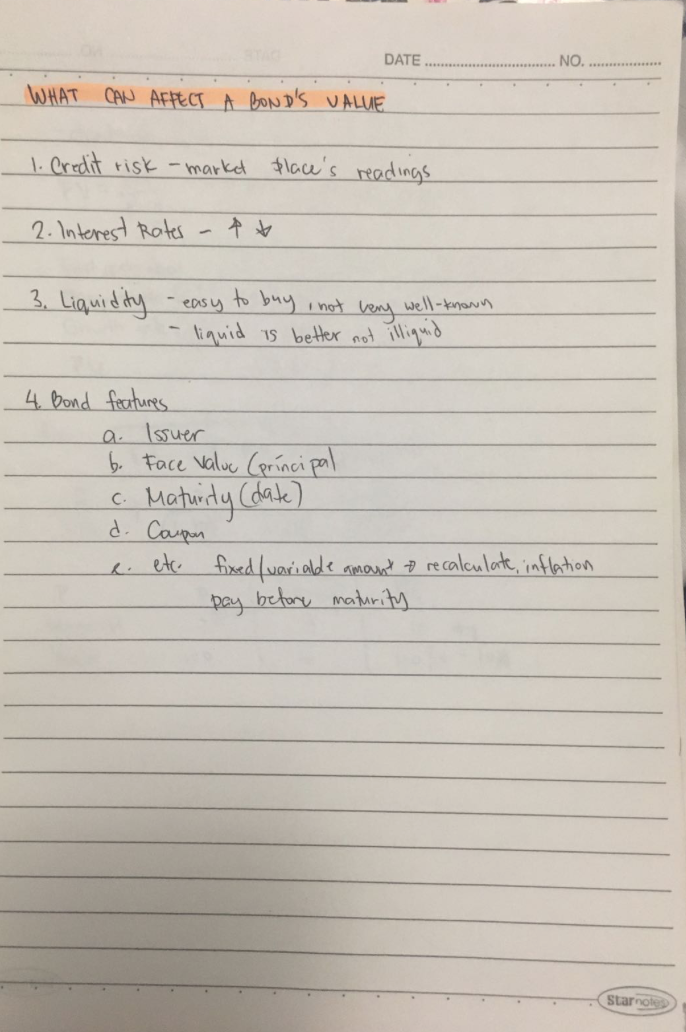 DATE ................................ NO. ...................
WHAT CAN AFFECT A BOND'S VALUE
1. Credit risk - market place's readings
2. Interest Rates - ↑ ↓
3. Liquidity - easy to buy, not very well-known
- liquid is better not illiquid
4. Bond features
a. Issuer
b. Face Value (principal
c. Maturity (date)
d. Coupon
e. etc. fixed/variable amount → recalculate, inflation
pay before maturity
Starnotes